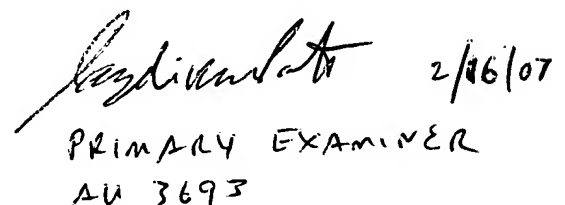 2/16/07
PRIMARY EXAMINER
AU 3693